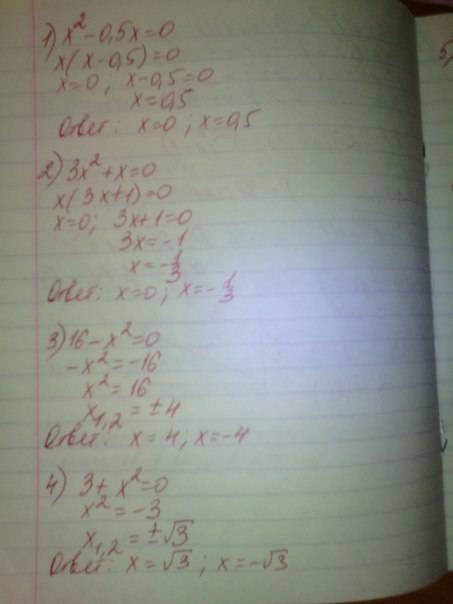 1) x² - 0,5x = 0
x(x - 0,5) = 0
x = 0, x - 0,5 = 0
x = 0,5
Ответ: x = 0; x = 0,5
2) 3x² + x = 0
x(3x + 1) = 0
x = 0; 3x + 1 = 0
3x = -1
x = -1/3
Ответ: x = 0; x = -1/3
3) 16 - x² = 0
-x² = -16
x² = 16
x₁,₂ = ±4
Ответ: x = 4, x = -4
4) 3 + x² = 0
x² = -3
x₁,₂ = ±√3
Ответ: x = √3; x = -√3
5)